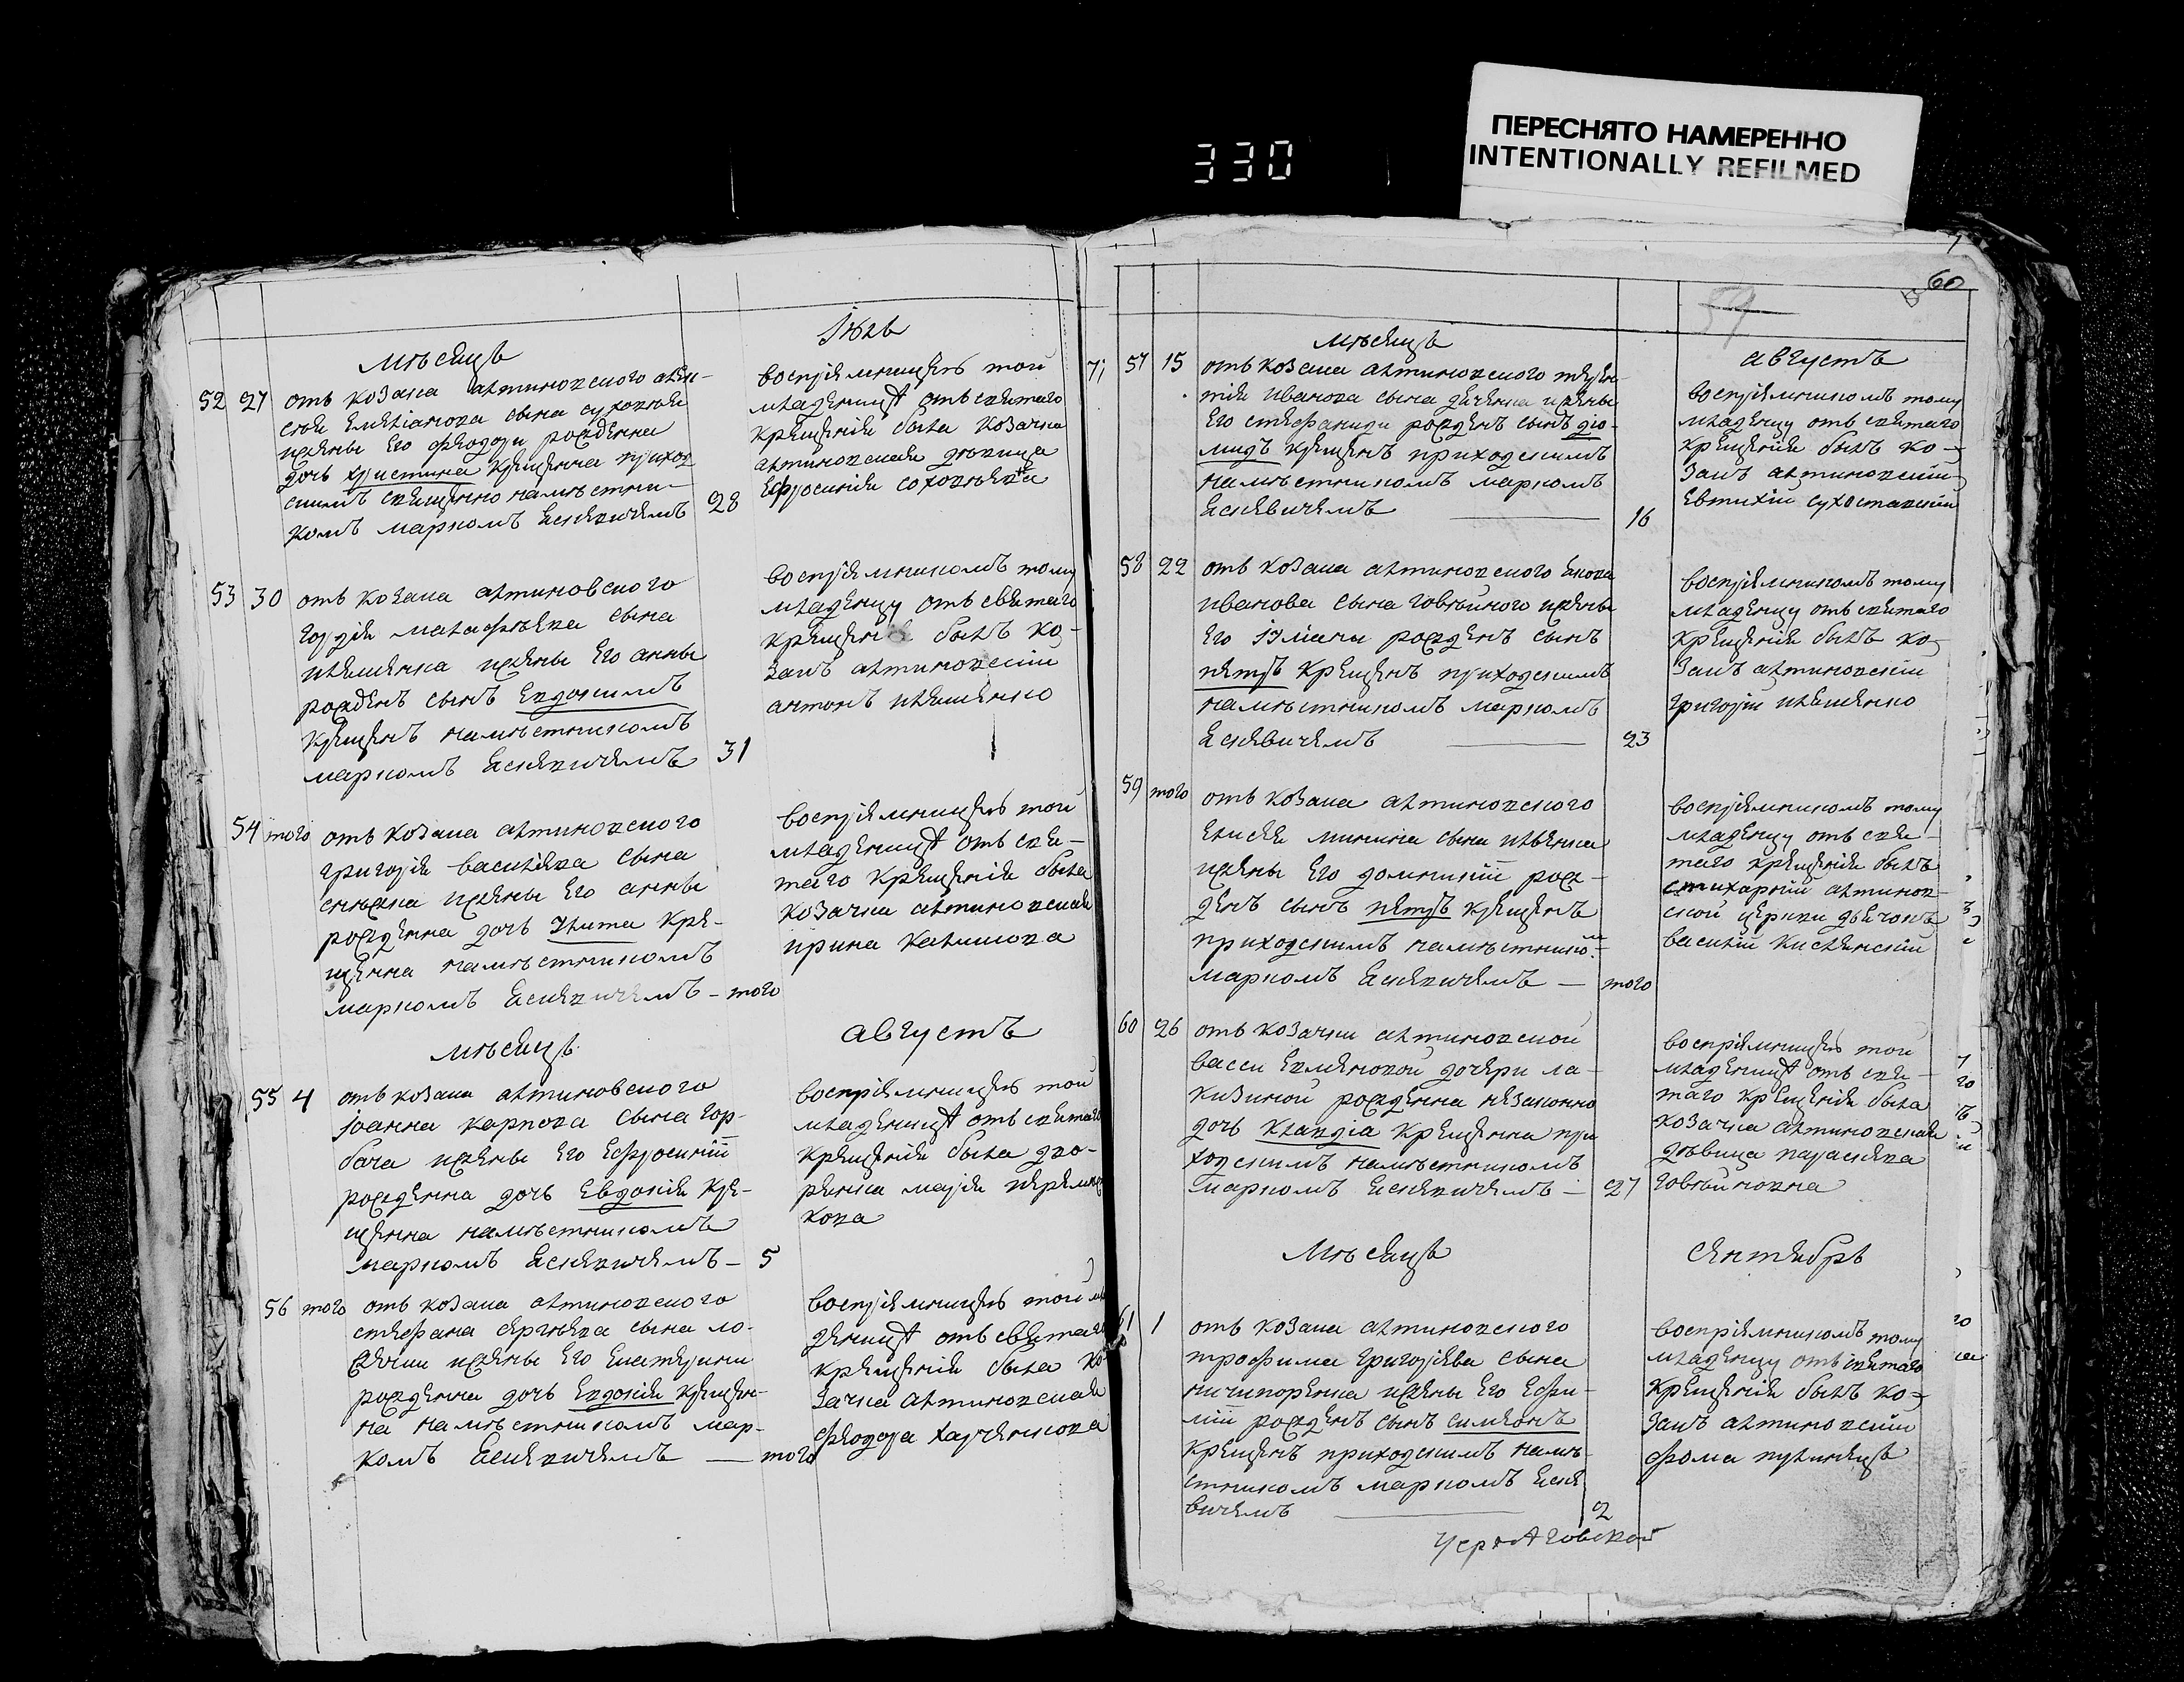 330
ПЕРЕСНЯТО НАМЕРЕННО
INTENTIONALLY REFILMED
мѣсяцъ
Іюль
52 27 отъ козака алтиновского алек-
сѣя емеліанова сына
жены его феодори рождена
дочь христина крещенна приход
скимъ священно намѣстни-
комъ маркомъ Есиевичемъ 28
воспріемницею той
младеницѣ отъ святаго
крещенія была козачка
алтиновская дѣвица
Ефросинія
53 30 отъ козака алтиновского
гордія малафѣева сына
ивашенка жены его анны
рожденъ сынъ Евдокимъ
крещенъ намѣстникомъ
маркомъ Есиевичемъ 31
воспріемникомъ тому
младенцу отъ святаго
крещенія былъ ко-
закъ алтиновскій
антонъ ивашенко
54 того отъ козака алтиновского
григорія василіева сына
жены его анны
рожденна дочь Улита кре-
щенна намѣстникомъ
маркомъ Есиевичемъ - того
воспріемницею той
младеницѣ отъ свя-
таго крещенія была
козачка алтиновская
ирина
мѣсяцъ
августъ
55 4 отъ козака алтиновского
іоанна карпова сына гор-
бача жены его Ефросиніи
рожденна дочь Евдокія кре-
щенна намѣстникомъ
маркомъ Есиевичемъ - 5
воспріемницею той
младеницѣ отъ святаго
крещенія была дво-
рянка марія

56 того отъ козака алтиновского
стефана сергѣева сына ло-
жечки жены его Екатерини
рожденна дочь Евдокія крещен-
на намѣстникомъ мар-
комъ Есиевичемъ — того
воспріемницею той мла
деницѣ отъ святаго
крещенія была ко-
зачка алтиновская
феодора харченкова
59
60
мѣсяцъ
августъ
57 15 отъ козака алтиновского терен-
тія иванова сына жены
его стефаниди рожденъ сынъ дио-
мидъ крещенъ приходскимъ
намѣстникомъ маркомъ
Есиевичемъ — 16
воспріемникомъ тому
младенцу отъ святаго
крещенія былъ ко-
закъ алтиновскій
Евтихій
58 22 отъ козака алтиновского якова
иванова сына говяйного жены
его іуліани рожденъ сынъ
петръ крещенъ приходскимъ
намѣстникомъ маркомъ
Есиевичемъ — 23
воспріемникомъ тому
младенцу отъ святаго
крещенія былъ ко-
закъ алтиновскій
григорій ивашенко
59 того отъ козака алтиновского
Елисея минина сына ивенка
жены его домникіи рож-
денъ сынъ петръ крещенъ
приходскимъ намѣстникомъ
маркомъ Есиевичемъ — того
воспріемникомъ тому
младенцу отъ свя-
таго крещенія былъ
стихарній алтинов-
ской церкви дьячокъ
василій
60 26 отъ козачки алтиновской
васси дочери ла-
кизиной рожденна незаконно
дочь клавдіа крещенна при
ходскимъ намѣстникомъ
маркомъ Есиевичемъ — 27
воспріемницею той
младеницѣ отъ свя-
таго крещенія была
козачка алтиновская
дѣвица параскева
говяйновна
Мѣсяцъ
Сентябрь
61 1 отъ козака алтиновского
трофима григоріева сына
ничипоренка жены его Ефи-
міи рожденъ сынъ симеонъ
крещенъ приходскимъ намѣ-
стникомъ маркомъ Есие
вичемъ — 2
воспріемникомъ тому
младенцу отъ святаго
крещенія былъ ко-
закъ алтиновскій
фома путивецъ
Черниговской